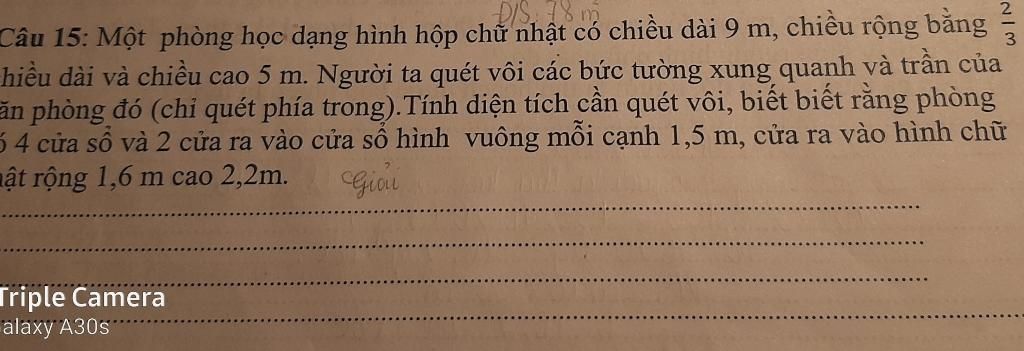 Đ/S. 78 m
Câu 15: Một phòng học dạng hình hộp chữ nhật có chiều dài 9 m, chiều rộng bằng 2/3
hiều dài và chiều cao 5 m. Người ta quét vôi các bức tường xung quanh và trần của
ăn phòng đó (chỉ quét phía trong).Tính diện tích cần quét vôi, biết biết rằng phòng
ó 4 cửa sổ và 2 cửa ra vào cửa sổ hình vuông mỗi cạnh 1,5 m, cửa ra vào hình chữ
hật rộng 1,6 m cao 2,2m. Giải
Triple Camera
alaxy A30s